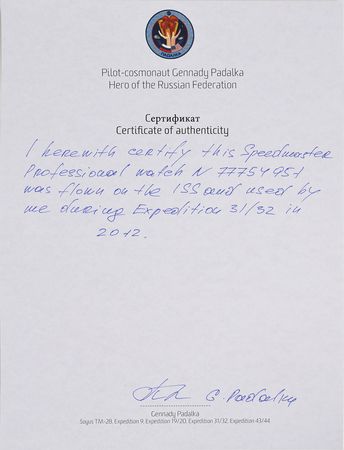 Pilot-cosmonaut Gennady Padalka
Hero of the Russian Federation
Сертификат
Certificate of authenticity
I herewith certify this Speedmaster
Professional watch N 77754951
was flown on the ISS and used by
me during Expedition 31/32 in
2012.
G Padalka
Gennady Padalka
Soyus TM-28, Expedition 9, Expedition 19/20, Expedition 31/32, Expedition 43/44